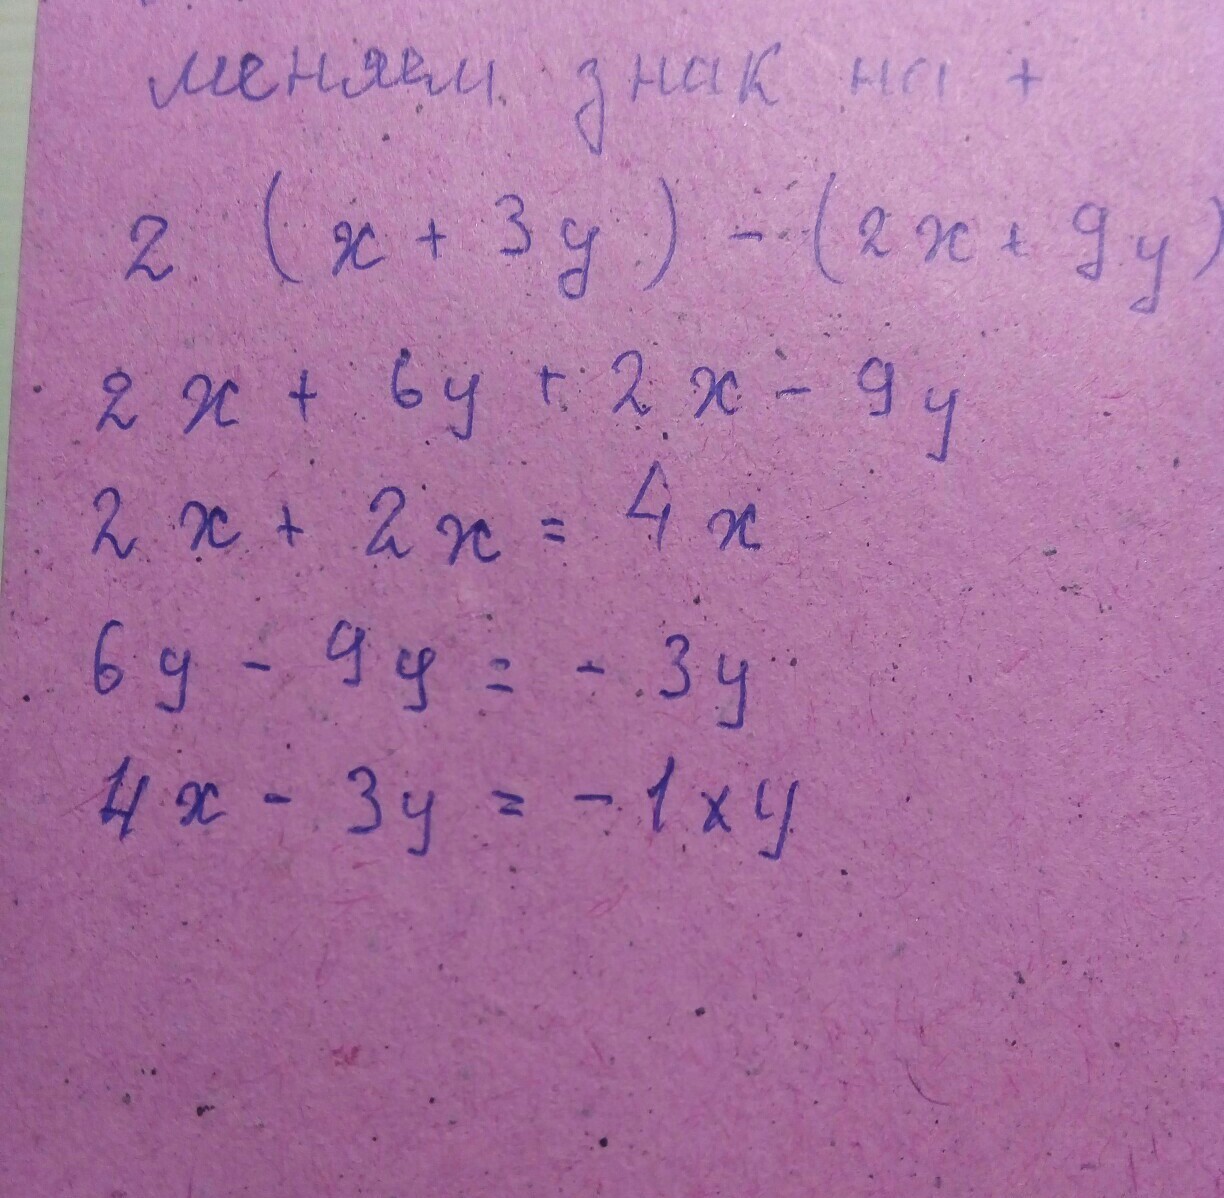 меняем знак на +
2 (x + 3y) - (2x + 9y)
2x + 6y + 2x - 9y
2x + 2x = 4x
6y - 9y = - 3y
4x - 3y = - 1xy